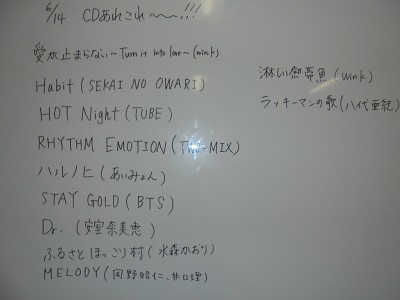 6/14 CDあれこれ〜〜!!!
愛が止まらない〜Turn it into love〜(wink)
Habit (SEKAI NO OWARI)
HOT Night (TUBE)
RHYTHM EMOTION (TWO-MIX)
ハルノヒ (あいみょん)
STAY GOLD (BTS)
Dr. (安室奈美恵)
ふるさとほっこり村 (水森かおり)
MELODY (岡野昭仁、井口理)
淋しい熱帯魚 (wink)
ラッキーマンの歌 (八代亜紀)